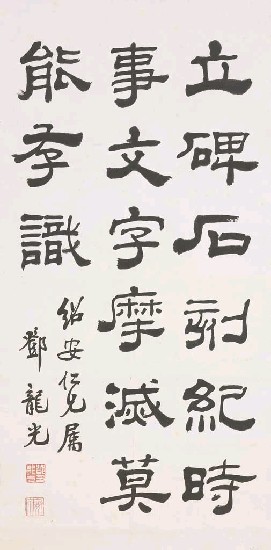 立碑石刻紀時
事文字摩滅莫
能存識
紹安仁兄屬
鄧龍光